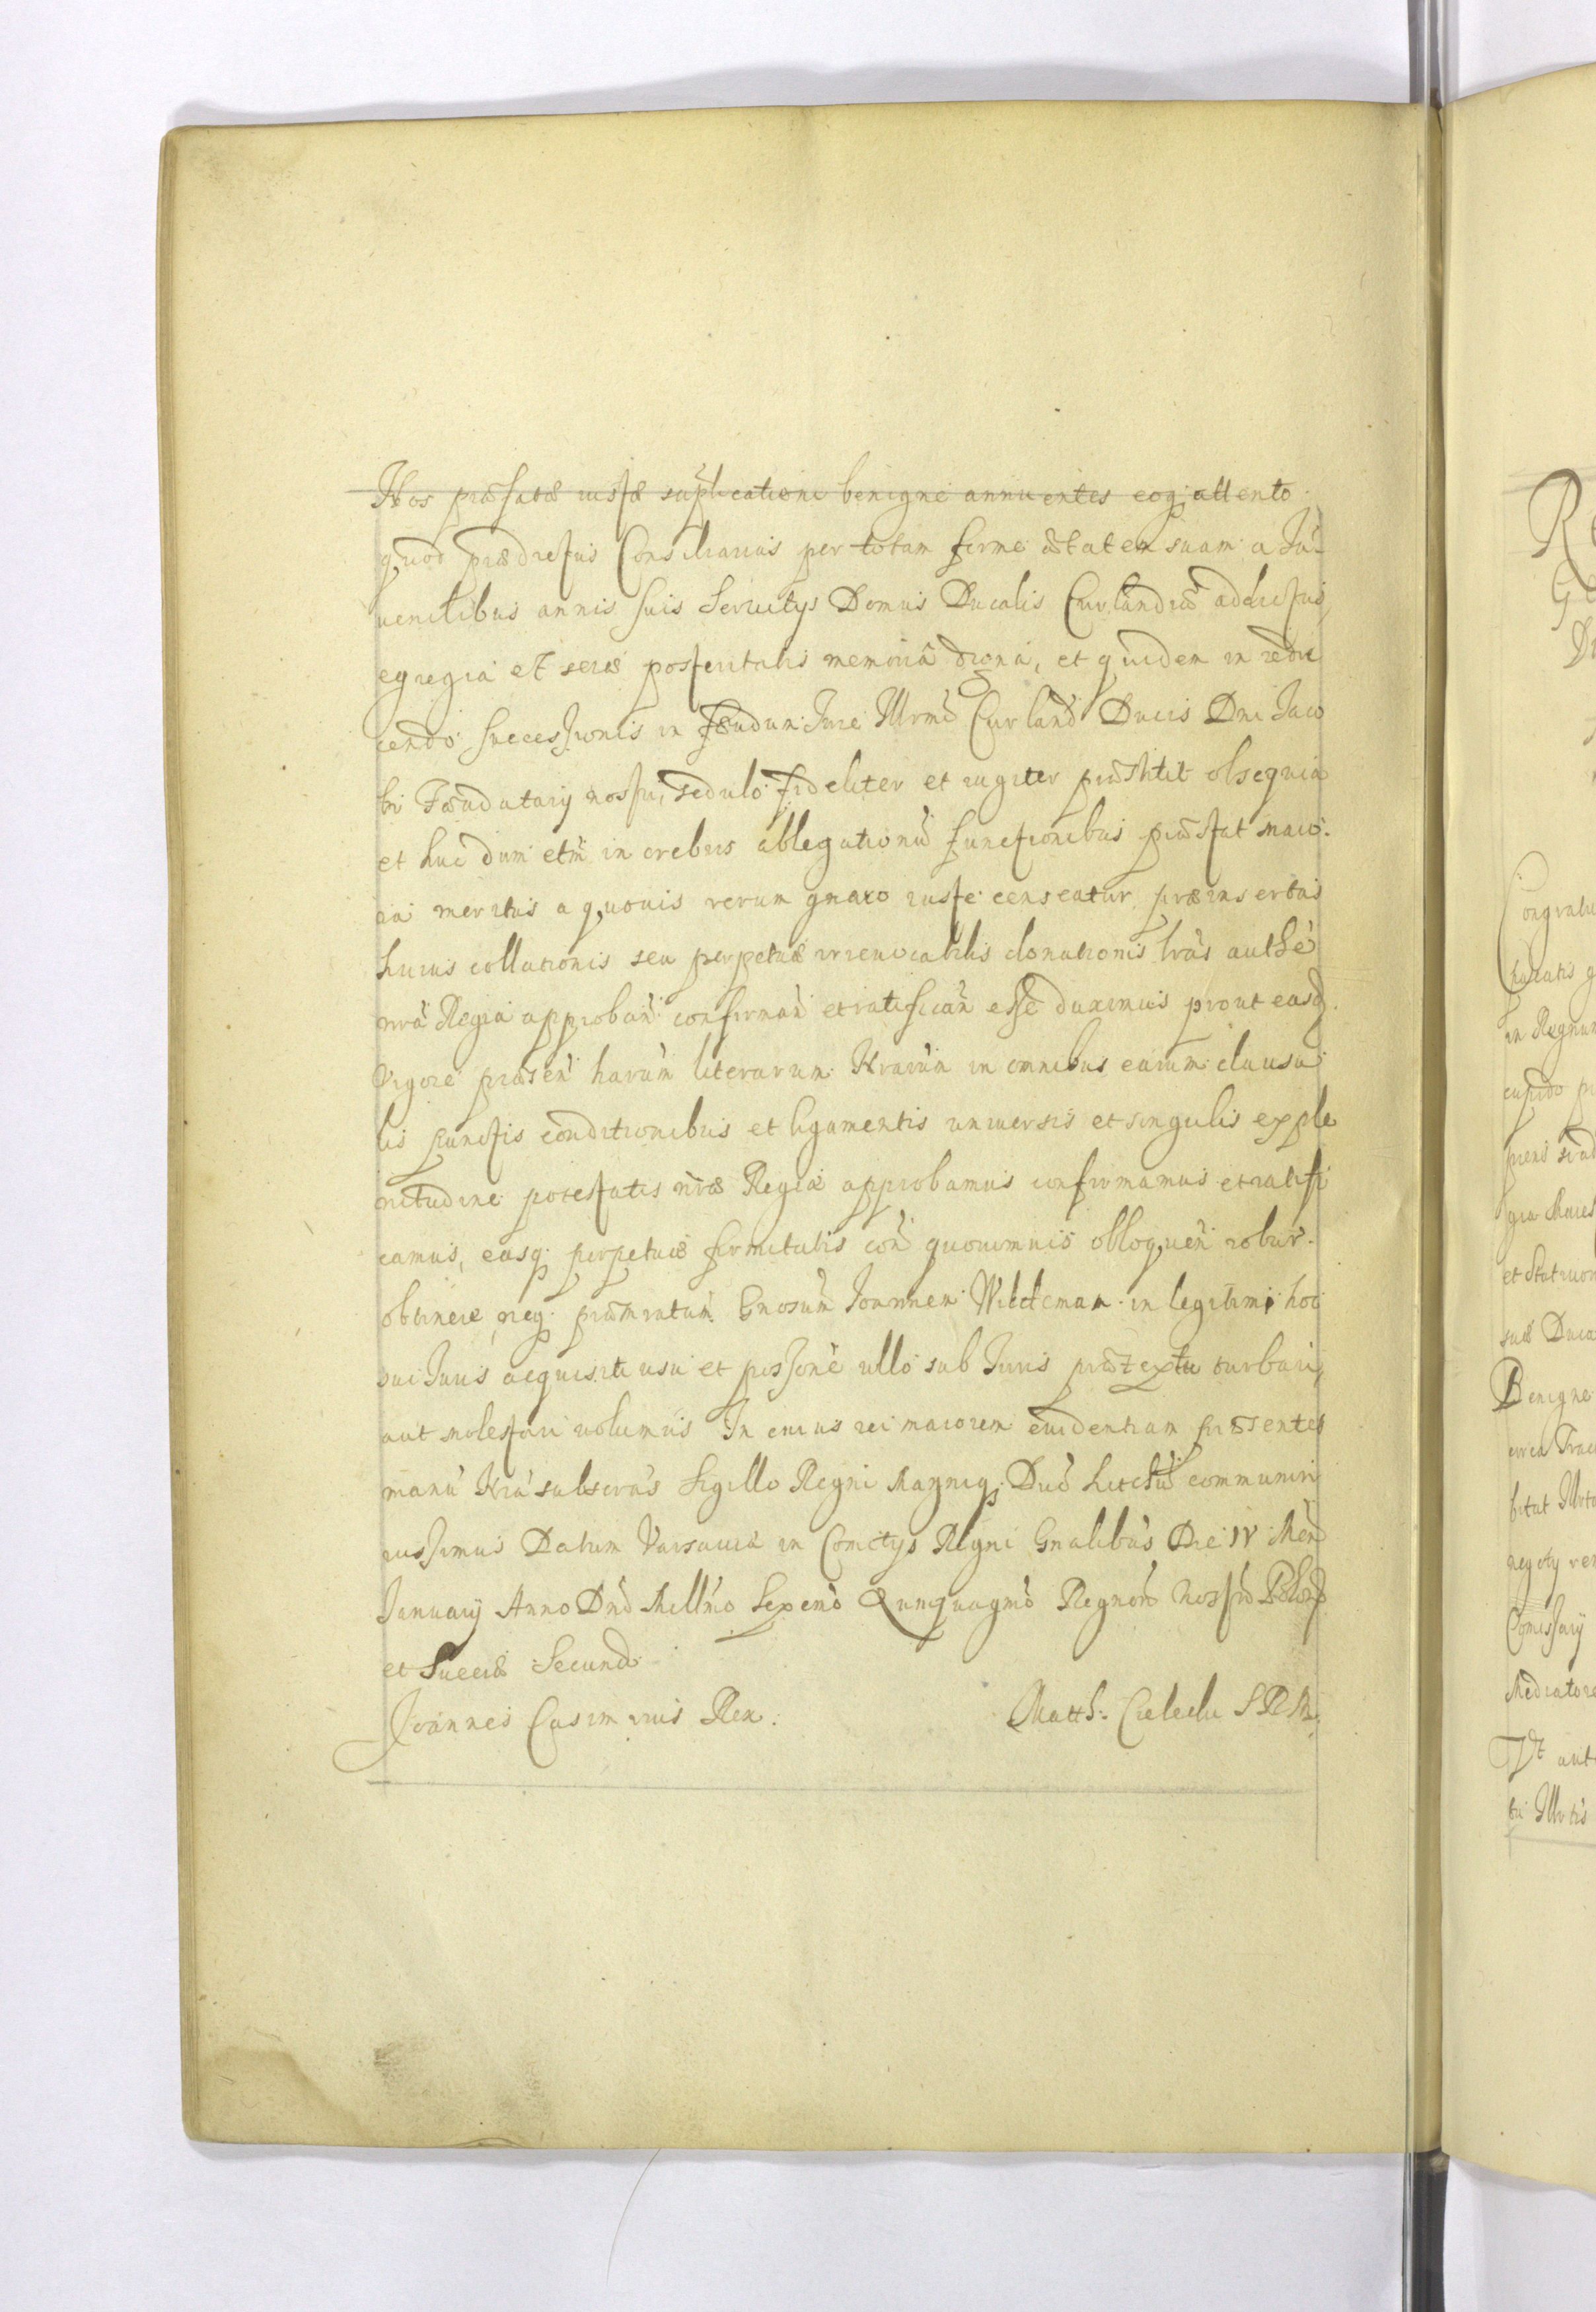 Nos præfatæ iustæ suplicationi benigne annuentes eoq; attento
quod prædictus Consiliarius per totam ferme ætatem suam a Ju-
venilibus annis suis Servitys Domus Ducalis Curlandiæ addictus,
egregia et seræ posteritatis memoriâ digna, et quidem in redu
cendo successionis in fæudum Jure Illrmi Curland Ducis Dni Jaco
bi Fæudatarij nostri, sedulo fideliter et iugiter præstitit obsequia
et huc dum etm in crebris ablegationu functionibus præstat
meritus a quovis rerum gnaro iuste censeatur præinsertas
huius collationis seu perpetuæ irrevocabilis donationis lrãs authe
nrã Regia approban confirman et ratifican esse duximus prout easq
Vigore præsen harum literarum Nrarum in omnibus earum clausu
lis punctis conditionibus et ligamentis universis et singulis exple
nitudine potestatis nræ Regiæ approbamus confirmamus et ratifi
camus, easq; perpetuæ firmitatis con quorumvis obloquen robur
obtinere neq; præmintum Gnosum Joannem Wildeman in legitimi hoc
sui Juris acquisiti usu et possione ullo sub Juris prætextu turbari,
aut molestari volumus In cuius rei maiorem evidentiam præsentes
manu Nra subscrãs Sigillo Regni Magniq; Duc Litt communiri
iussimus Datum Varsaviæ in Comitys Regni Gnalibus Die IV Men
January Anno Dni Millmo Sexcmo Qunquagmo Regnorum Nostrorum Polon
et Sueciæ Secund
Joannes Casimirus Rex. Matth: Cielecki SRM.
R
Congratu
in Regnum
cupido
et
suæ Duca
Benigne
circa Trac
negoty
Comissary
Mediatore
Vt
bi Illrtis